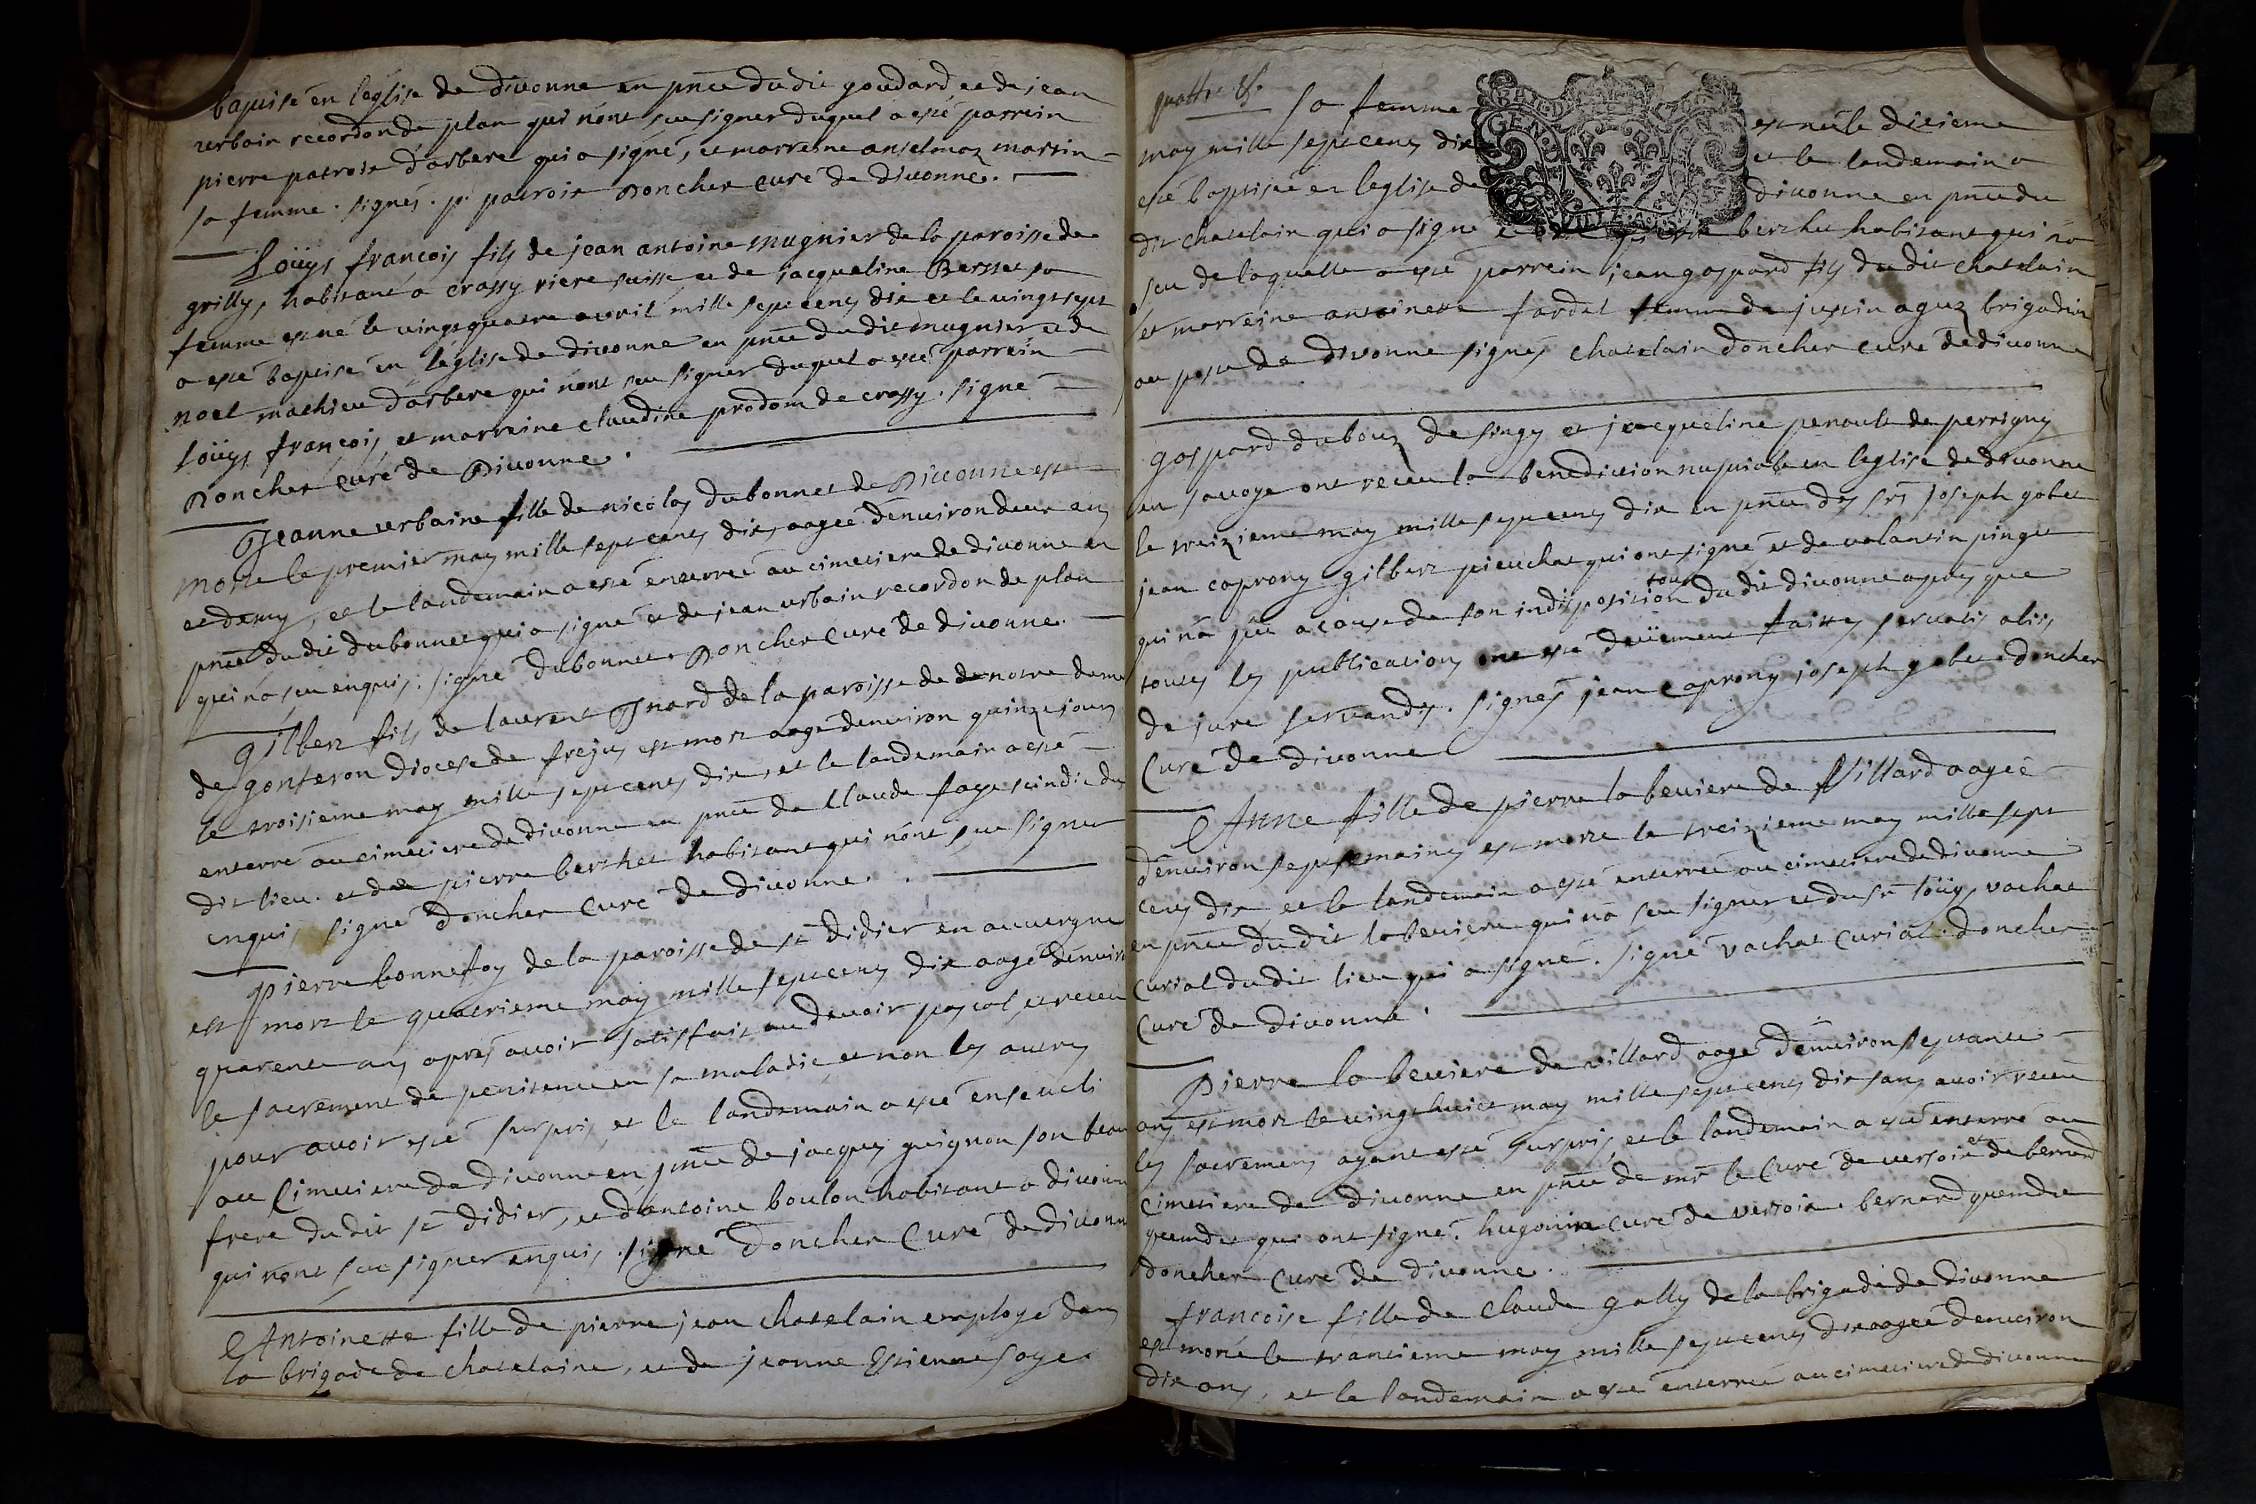 baptisé en l'église de divonne en pnce du dit goudard et de jean
urbain recordon de plan qui n'ont sceu signer duquel a esté parrein
pierre patroir d'arbere qui a signé, et marreine anselmaz martin
sa femme. signés. p. patroir Doncher curé de divonne.
Loüys françois fils de jean antoine mugnier de la paroisse de
grilly, habitant a crassy riere suisse, et de jacqueline Berset sa
femme est né le vingtquatre avril mille sept cens dix et le vingt sept
a esté baptisé en l'église de divonne en pnce du dit mugnier et de
noel mathieu d'arbere qui n'ont sceu signer duquel a esté parrein
Loüys françois et marreine claudine prodom de crassy. signé
Doncher curé de Divonne.
Jeanne urbaine fille de nicolas dubonnet de Divonne est
morte le premier may mille sept cens dix, aagée d'environ deux ans
et demy, et le landemain a esté enterrée au cimetiere de divonne en
pnce du dit dubonnet qui a signé et de jean urbain recordon de plan
qui n'a sceu enquis. signé dubonnet Doncher curé de divonne.
Gilbert fils de laurent Isnard de la paroisse de de notre dame
de gonferon diocese de frejus est mort aagé d'environ quinze jours
le troisieme may mille sept cens dix, et le landemain a esté
enterré au cimetiere de divonne en pnce de Claude faye scindic du
dit lieu. et de pierre berthet habitant qui n'ont sceu signer
enquis, signé Doncher curé de divonne.
Pierre bonnefoy de la paroisse de st Didier en auvergne
est mort le quatrieme may mille sept cens dix aagé d'environ
quarente ans apres avoir satisfait au devoir pascal, et receu
le sacrement de penitence en sa maladie et non les autres
pour avoir esté surpris, et le landemain a esté enseveli
au cimetiere de divonne en pnce de jacques guignon son beau
frere du dit st Didier, et d'antoine boulon habitant a divonne
qui n'ont sceu signer enquis. signé Doncher Curé de divonne
Antoinette fille de pierre jean chatelain employé dans
la brigade de chatelaine, et de jeanne Estienne soye
quattre &.
sa femme est née le dixieme
may mille sept cens dix et le landemain a
esté baptisée en l'eglise de divonne en pnce du
dit chatelain qui a signé et de pierre berthet habitant qui n'a
sceu de laquelle a esté parrein jean gaspard fils du dit chatelain
et marreine antoinette fardel femme de justin aguz brigadier
au poste de divonne signés chatelain doncher curé de divonne
gaspard dubouz de singy et jacqueline penoult de perrigny
en savoye ont receu la benediction nuptiale en l'eglise de divonne
le treizieme may mille sept cens dix en pnce des srs joseph gobet
jean caprony gilbert pieuchat qui ont signé et de valantin pinget
qui n'a sceu a cause de son indisposition tous du dit divonne apres que
toutes les publications ont esté deüement faittes servatis aliis
de jure servandis. signés jean caprony joseph gobet doncher
Curé de divonne
Anne fille de pierre la beviere de Villard aagée
d'environ sept semaines est morte le treizieme may mille sept
cens dix, et le landemain a esté enterrée au cimetiere de divonne
en pnce du dit la beviere qui n'a sceu signer et du sr loüys vachat
curial du dit lieu qui a signé. signé vachat curial. doncher
curé de divonne.
Pierre la beviere de villard aagé d'environ septante
ans est mort le vingt huict may mille sept cens dix sans avoir receu
les sacremens ayant esté surpris, et le landemain a esté enterré au
cimetiere de divonne en pnce de mr le curé de versoir et de bernard
quendet qui ont signé. hugonin curé de versoix bernard quendet
doncher curé de divonne.
francoise fille de claude gally de la brigade de divonne
est morte le trantieme may mille sept cens dix aagée d'environ
dix ans, et le landemain a esté enterrée au cimetiere de divonne